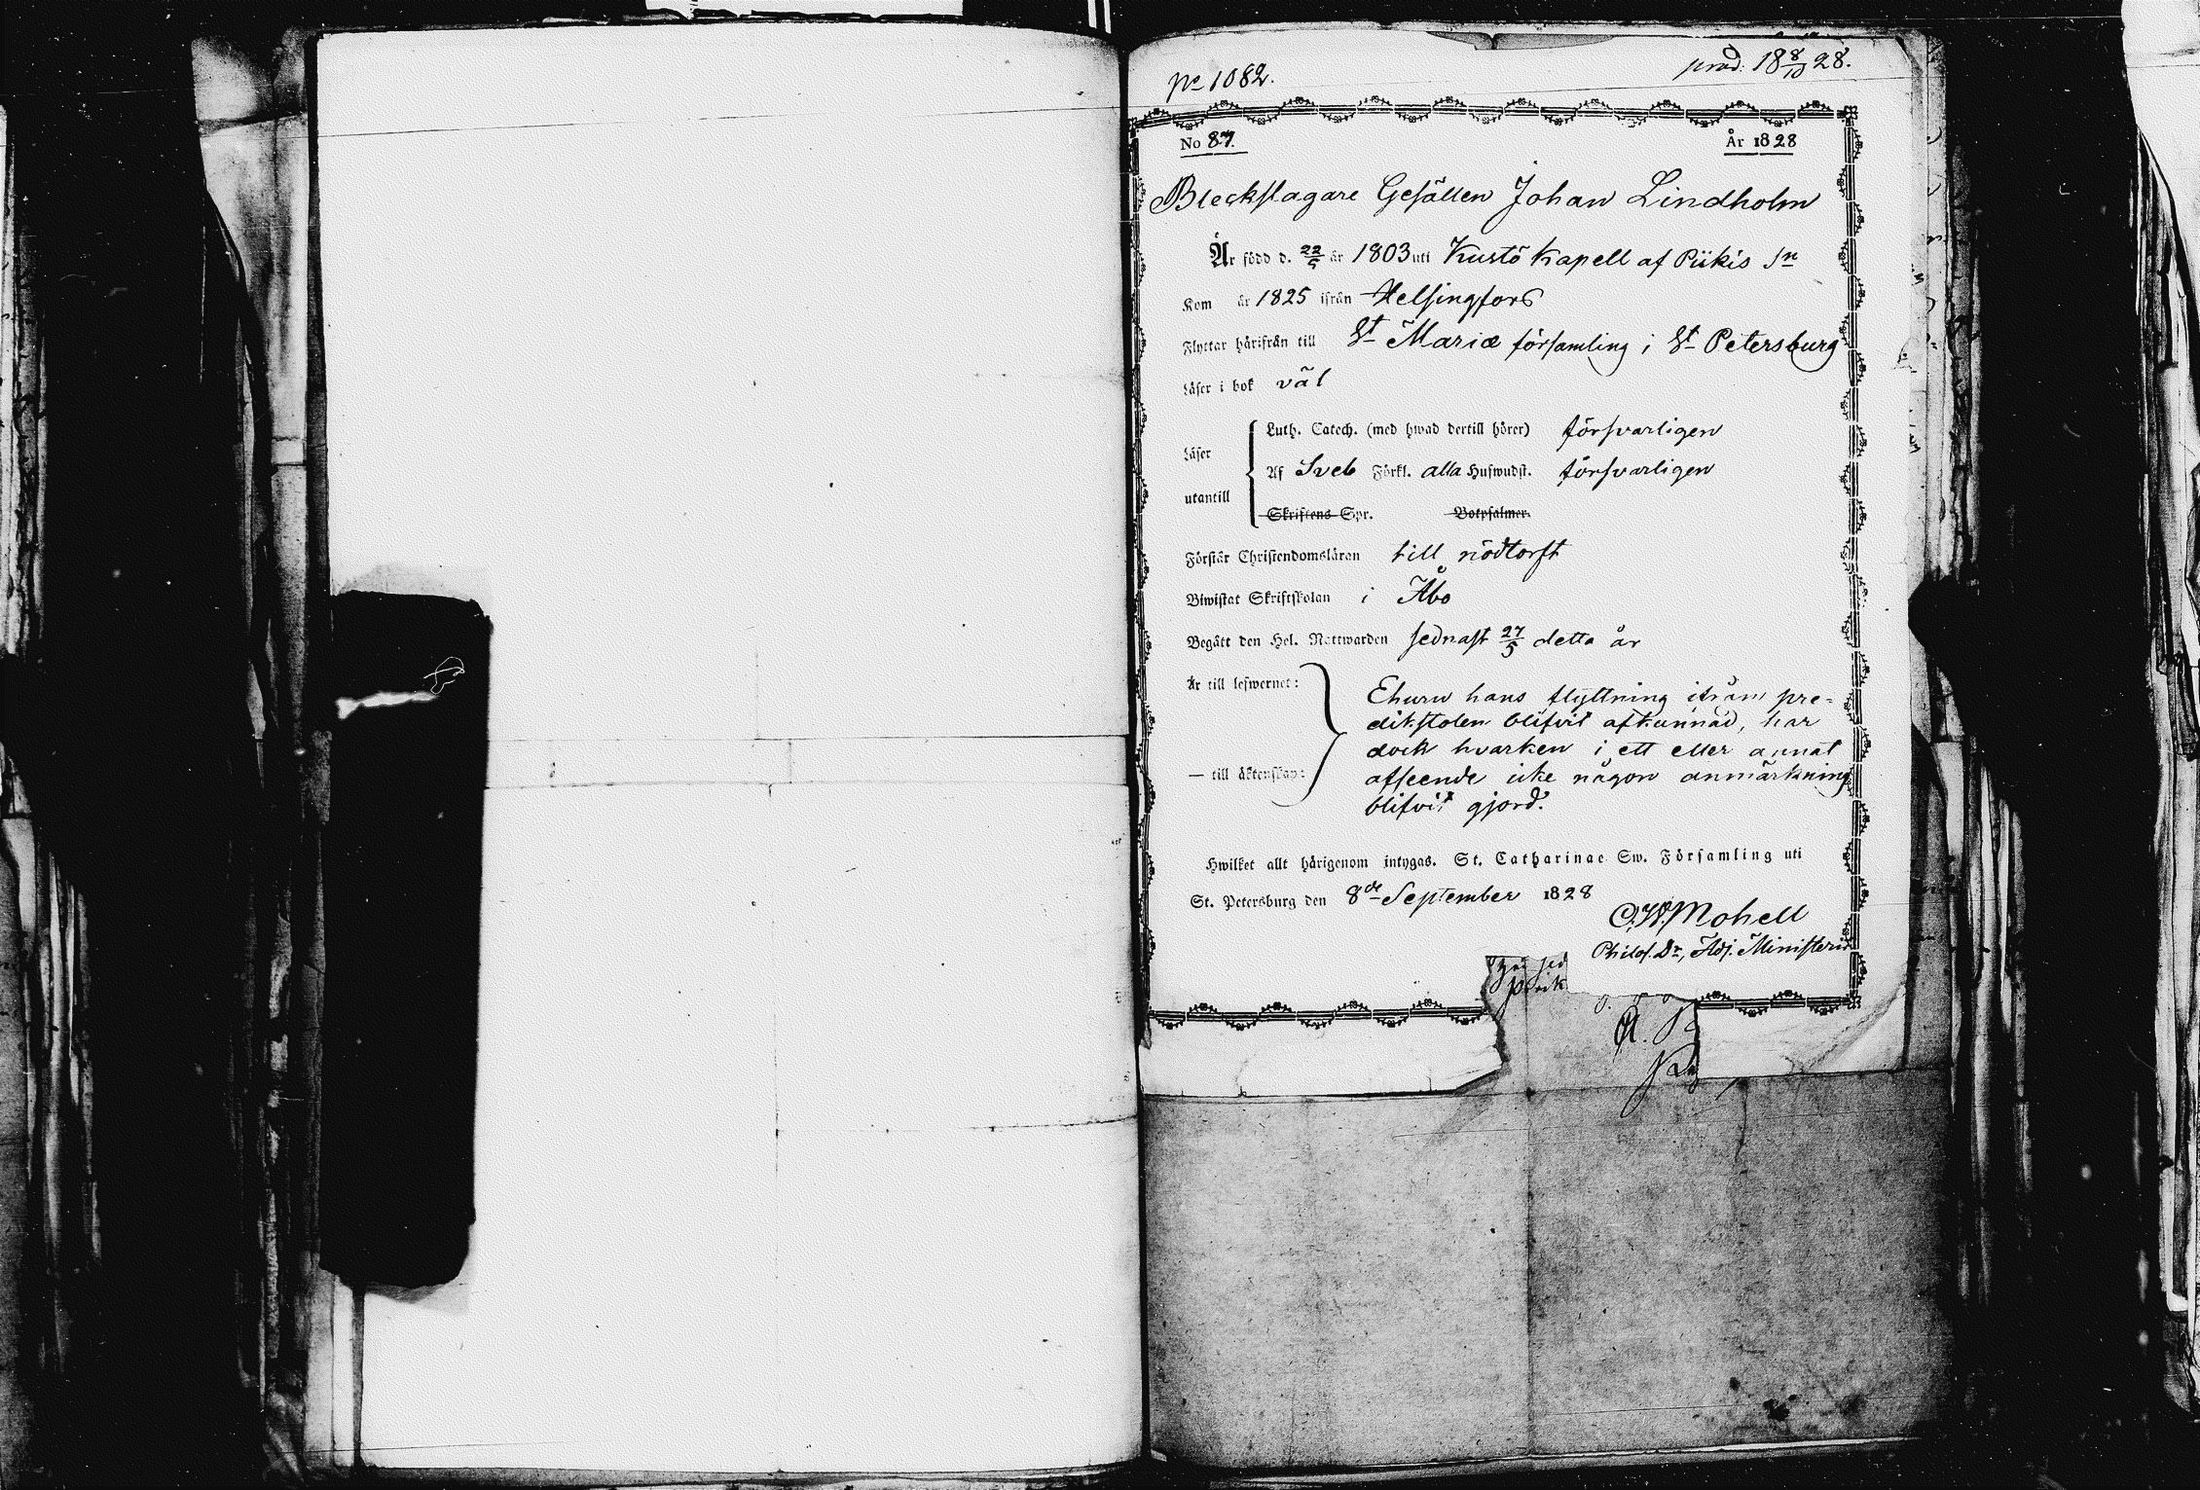 No 1082.
prod. 18 8/10 28.
No 87.
År 1828
Bleckslagare Gesällen Johan Lindholm
Är född d. 22/5 år 1803 uti Kustö Kapell af Piikis Sn
Kom år 1825 ifrån Helsingfors
Flyttar härifrån till St Mariæ församling i St Petersburg
Läser i bok väl
Luth. Catech. (med hwad dertill hörer) försvarligen
Läser
Af Sveb Förkl. alla Hufwudst. försvarligen
utantill
Skriftens Spr. Botpsalmer.
Förstår Christendomsläran till nödtorft
Biwistat Skriftskolan i Åbo
Begått den Hel. Nattwarden sednast 27/5 detta år
Är till lefwernet:
Ehuru hans flyttning ifrån pre-
dikstolen blifvit afkunnad, har
dock hvarken i ett eller annat
— till äktenskap:
afseende icke någon anmärkning
blifvit gjord.
Hwilket allt härigenom intygas. St. Catharinae Sw. Församling uti
St. Petersburg den 8de September 1828
C.W. Mohell
Philos. Dr, Adj. Ministerii